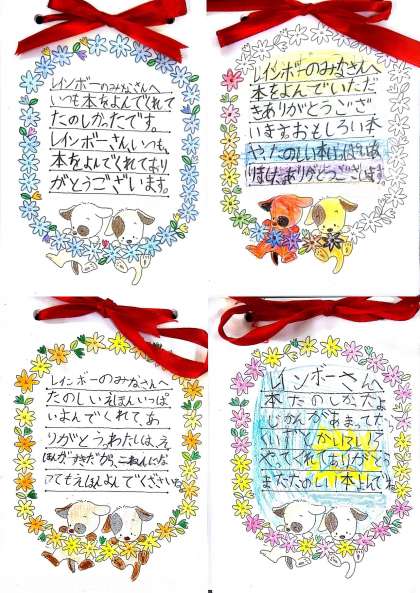 レインボーのみなさんへ
いつも本をよんでくれて
たのしかったです。
レインボーさん、いつも、
本をよんでくれてあり
がとうございます。
レインボーのみなさんへ
本をよんでいただ
きありがとうござ
います。おもしろい本
や、たのしい本もいっぱいあ
りました。ありがとうございます。
レインボーのみなさんへ
たのしいえほんいっぱ
いよんでくれて、あ
りがとう。わたしは、え
ほんが、すきだから、こねんに
てもえほんよんでくださいね
レインボーさんへ
本たのしかったよ
じかんがあまってたら
くいずとかいろいろ
やってくれてありがとう
またたのしい本よんでね